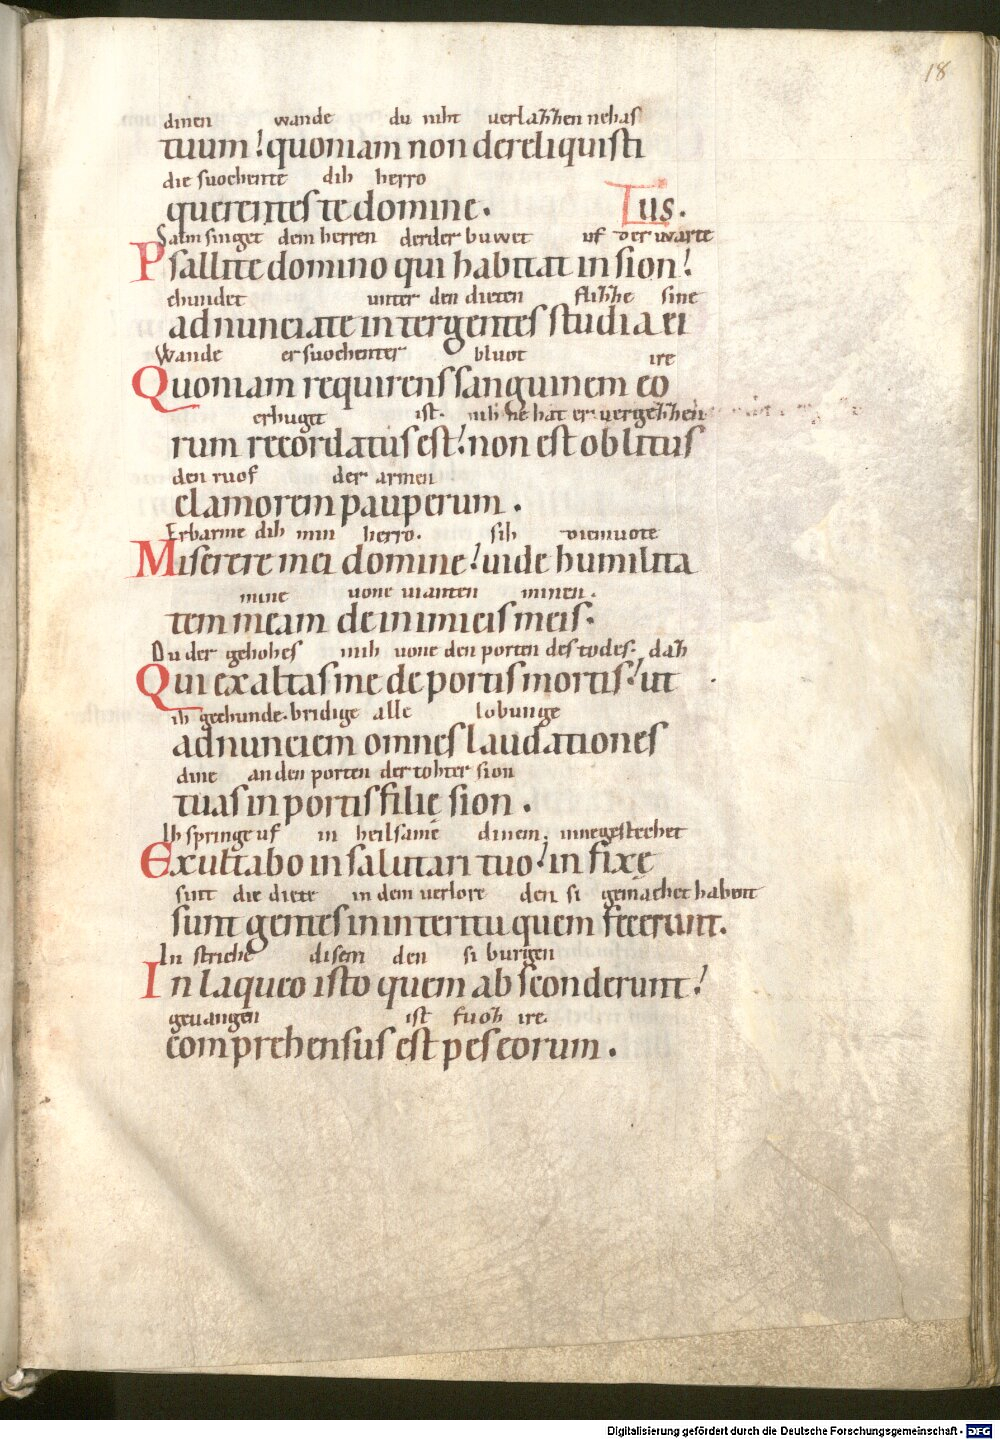 18
dinen wande du niht verlaʒʒen nehas
tuum! quoniam non dereliquisti
die suochente dih herro
querentes te domine. Lus.
Salm singet dem herren der der buwet uf der warte
Psallite domino qui habitat in sion!
chundet unter den dieten fliʒʒe sine
adnunciate inter gentes studia ei
Wande er suochenter bluot ire
Quoniam requirens sanguinem eo
erhuget ist. nih ne hat er vergeʒʒen
rum recordatus est! non est oblitus
den ruof der armen
clamorem pauperum.
Erbarme dih min herro. sih diemuote
Miserere mei domine! uide humilita
mine uone uianten minen.
tem meam de inimicis meis.
Du der gehohes mih uone den porten des todes. daʒ
Qui exaltas me de portis mortis! ut
ih gechunde. bridige alle lobunge
adnunciem omnes laudationes
dine an den porten der tohter sion
tuas in portis filie sion.
Ih springe uf in heilsame dinem. innegestechet
Exultabo in salutari tuo! in fixę
sint die diete in dem verlore den si gemachet habent
sunt gentes in interitu quem fecerunt.
In striche disem den si burgen
In laqueo isto quem absconderunt!
geuangen ist fuoʒ ire.
comprehensus est pes eorum.
Digitalisierung gefördert durch die Deutsche Forschungsgemeinschaft - DFG